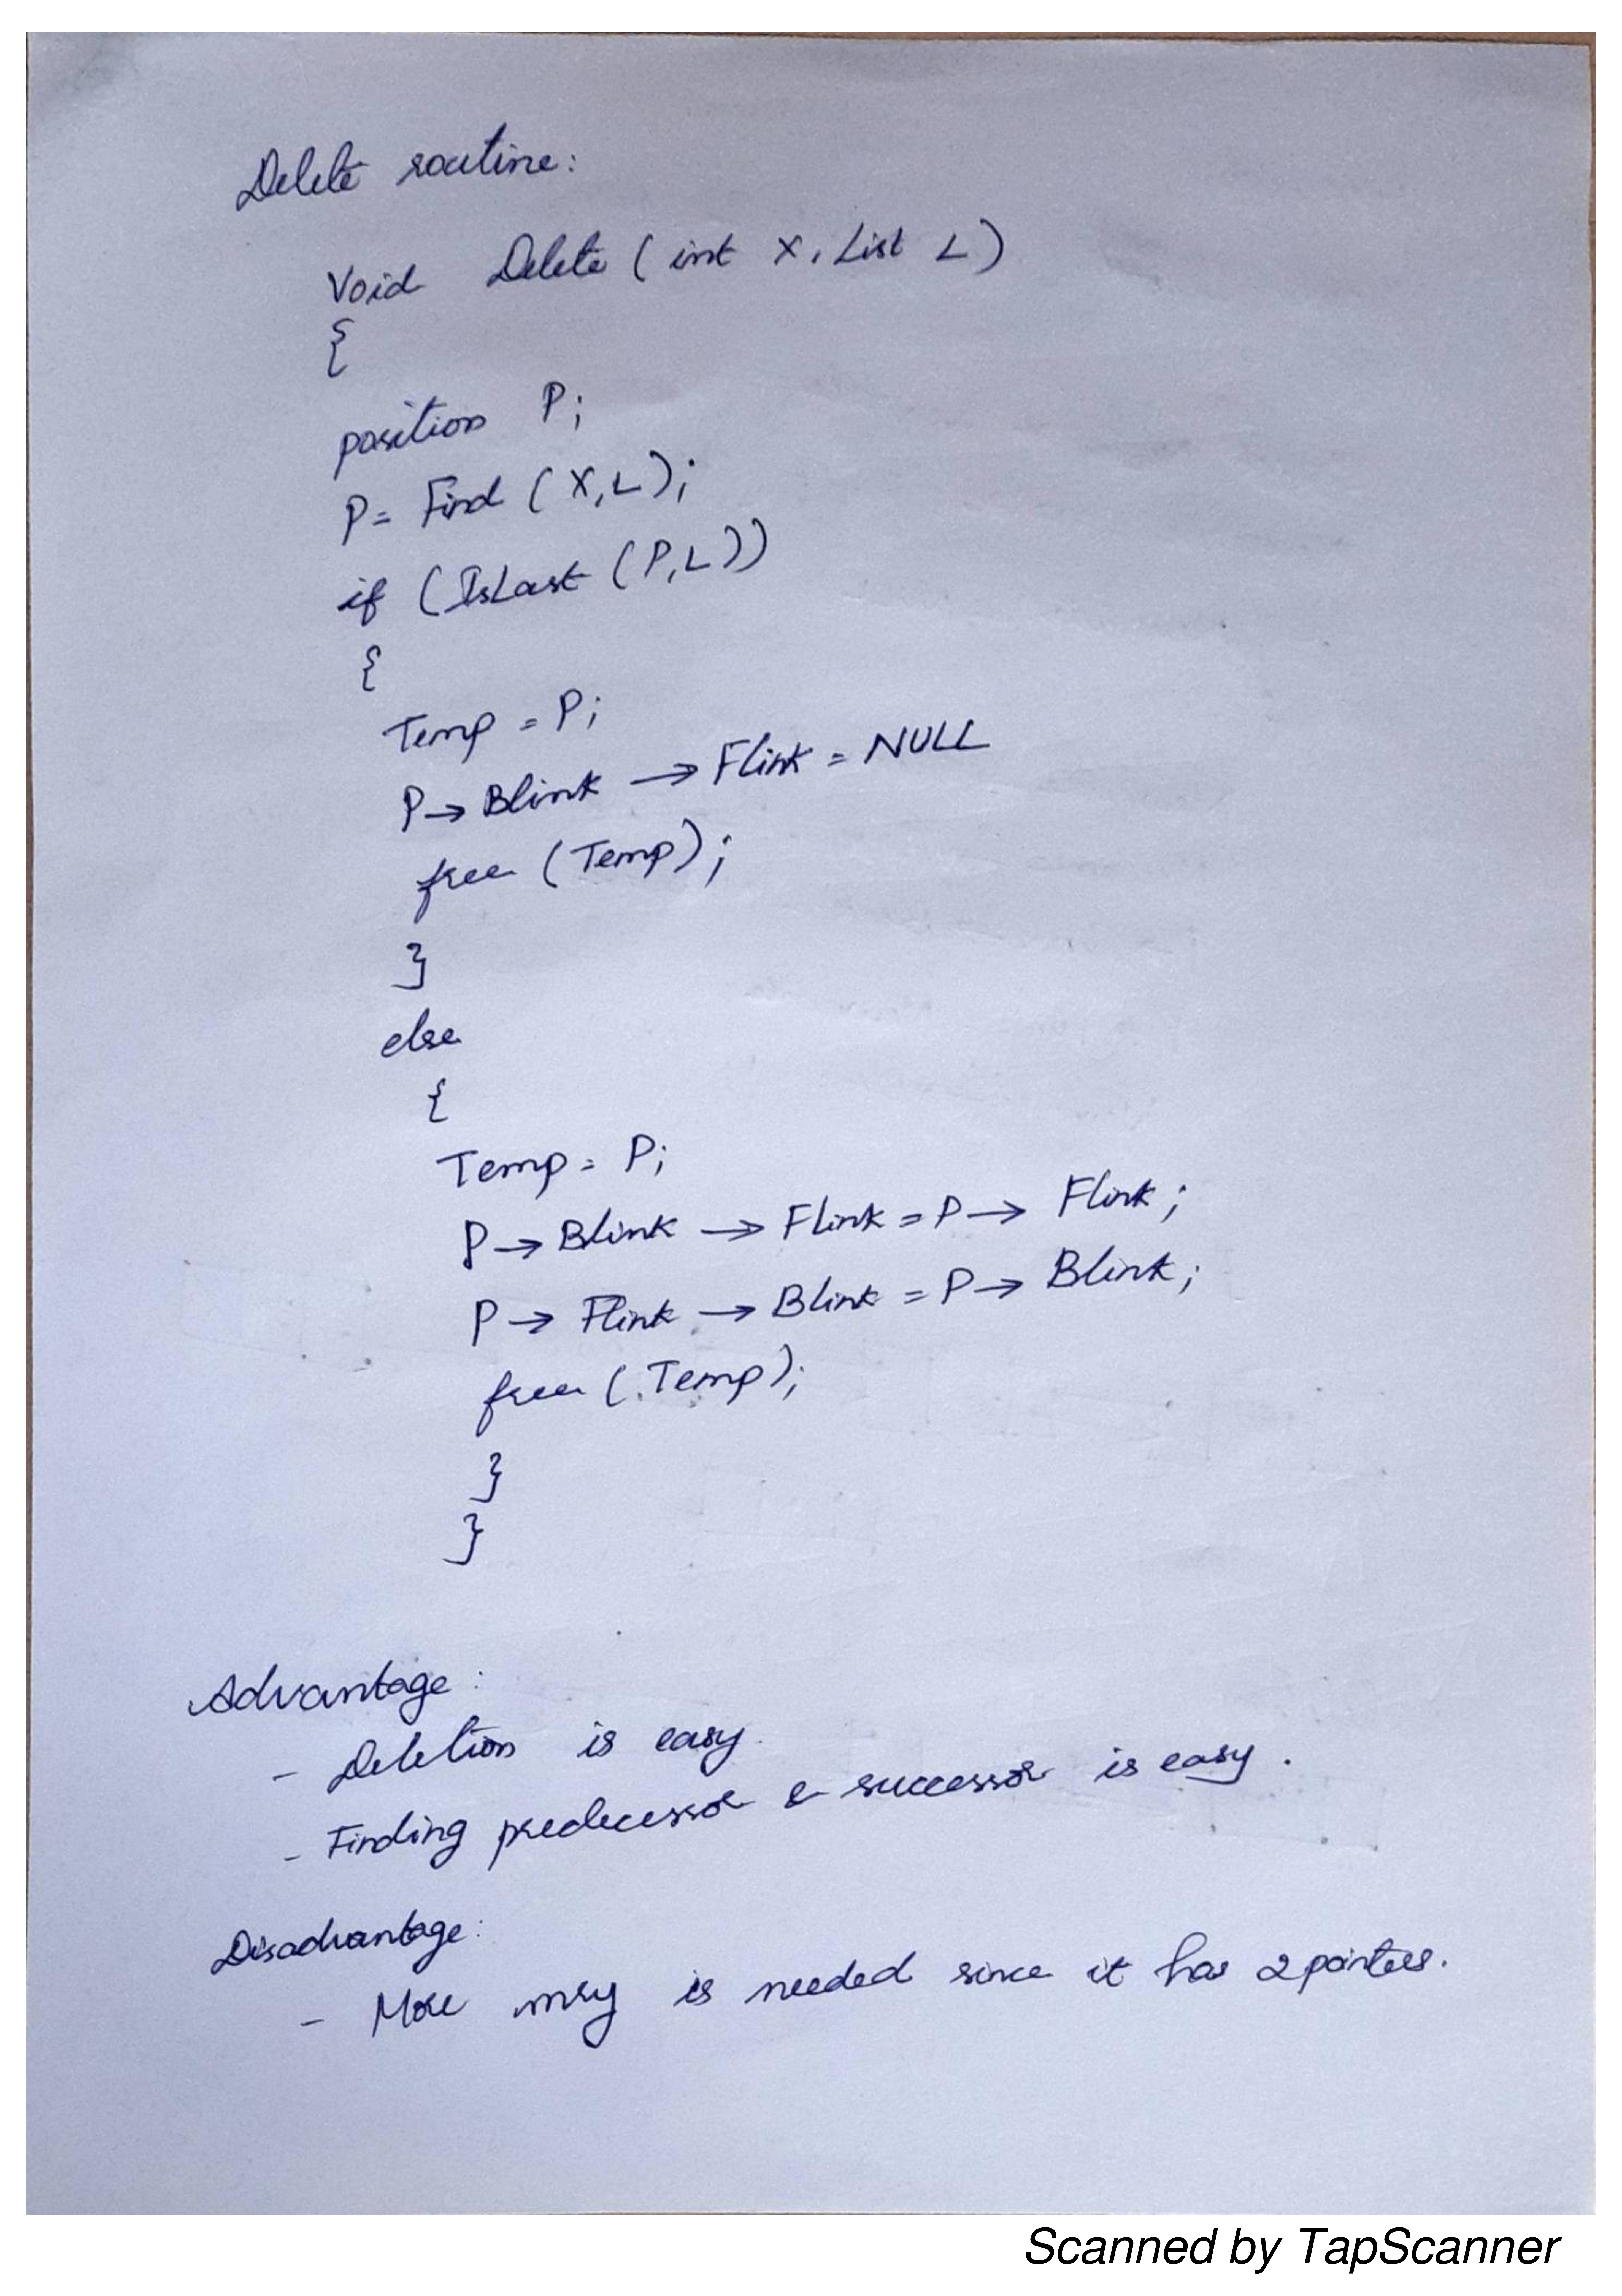 Delete routine:
Void Delete ( int X, List L )
{
position P;
P = Find ( X, L );
if ( IsLast ( P, L ))
{
Temp = P;
P → Blink → Flink = NULL
free ( Temp );
}
else
{
Temp = P;
P → Blink → Flink = P → Flink ;
P → Flink → Blink = P → Blink ;
free ( Temp );
}
}
Advantage :
- Deletion is easy.
- Finding predecessor & successor is easy .
Disadvantage:
- More mry is needed since it has 2 pointers.
Scanned by TapScanner